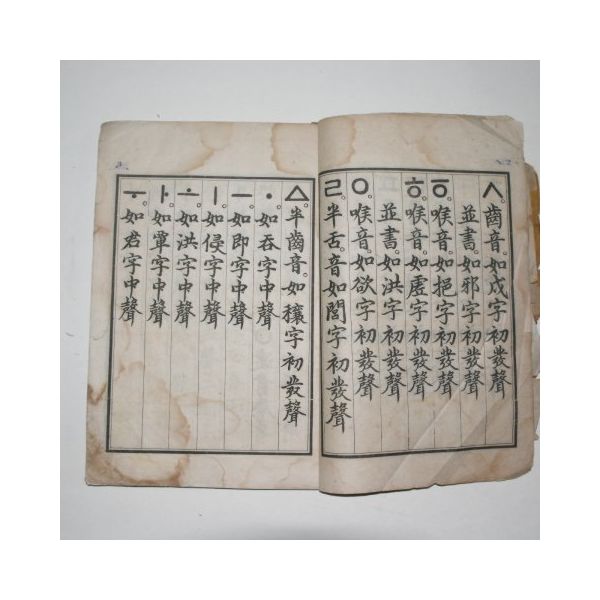 ㅅ。齒音。如戌字初發聲
並書。如邪字初發聲
ㆆ。喉音。如挹字初發聲
ㅎ。喉音。如虛字初發聲
並書。如洪字初發聲
ㅇ。喉音。如欲字初發聲
ㄹ。半舌音。如閭字初發聲
ㅿ。半齒音。如穰字初發聲
ㆍ。如呑字中聲
ㅡ。如即字中聲
ㅣ。如侵字中聲
ㅗ。如洪字中聲
ㅏ。如覃字中聲
ㅜ。如君字中聲